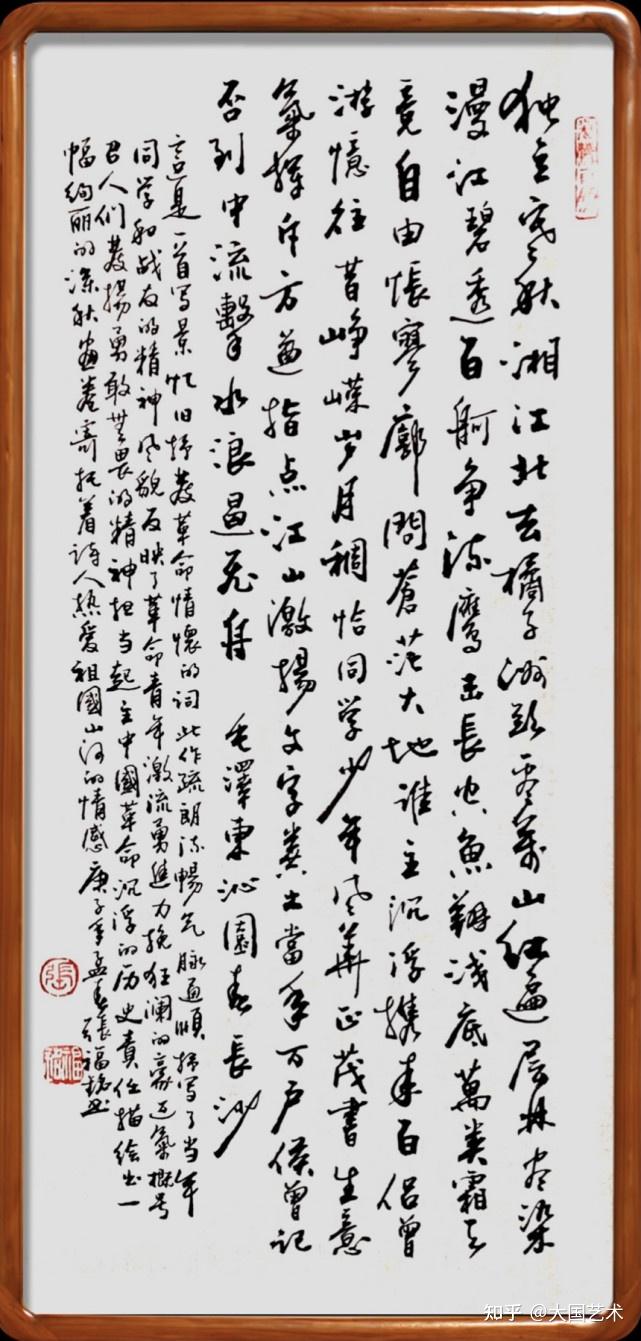 独立寒秋湘江北去橘子洲头看萬山红遍层林尽染
漫江碧透百舸争流鹰击長空魚翔浅底萬类霜天
竞自由悵寥廓問蒼茫大地谁主沉浮携来百侣曾
游憶往昔峥嵘岁月稠恰同学少年风華正茂書生意
氣揮斥方遒指点江山激揚文字粪土當年万户侯曾記
否到中流擊水浪遏飞舟 毛澤東沁園春長沙
這是一首写景忆旧抒發革命情懷的词此作疏朗流暢气脉通顺抒写了当年
同学和战友的精神风貌反映了革命青年激流勇進力挽狂澜的豪迈氣概号
召人们發揚勇敢無畏的精神担当起主中國革命沉浮的历史責任描绘出一
幅绚丽的深秋画卷寄托着诗人热爱祖國山河的情感庚子年孟春張福
張
知乎 @大国艺术